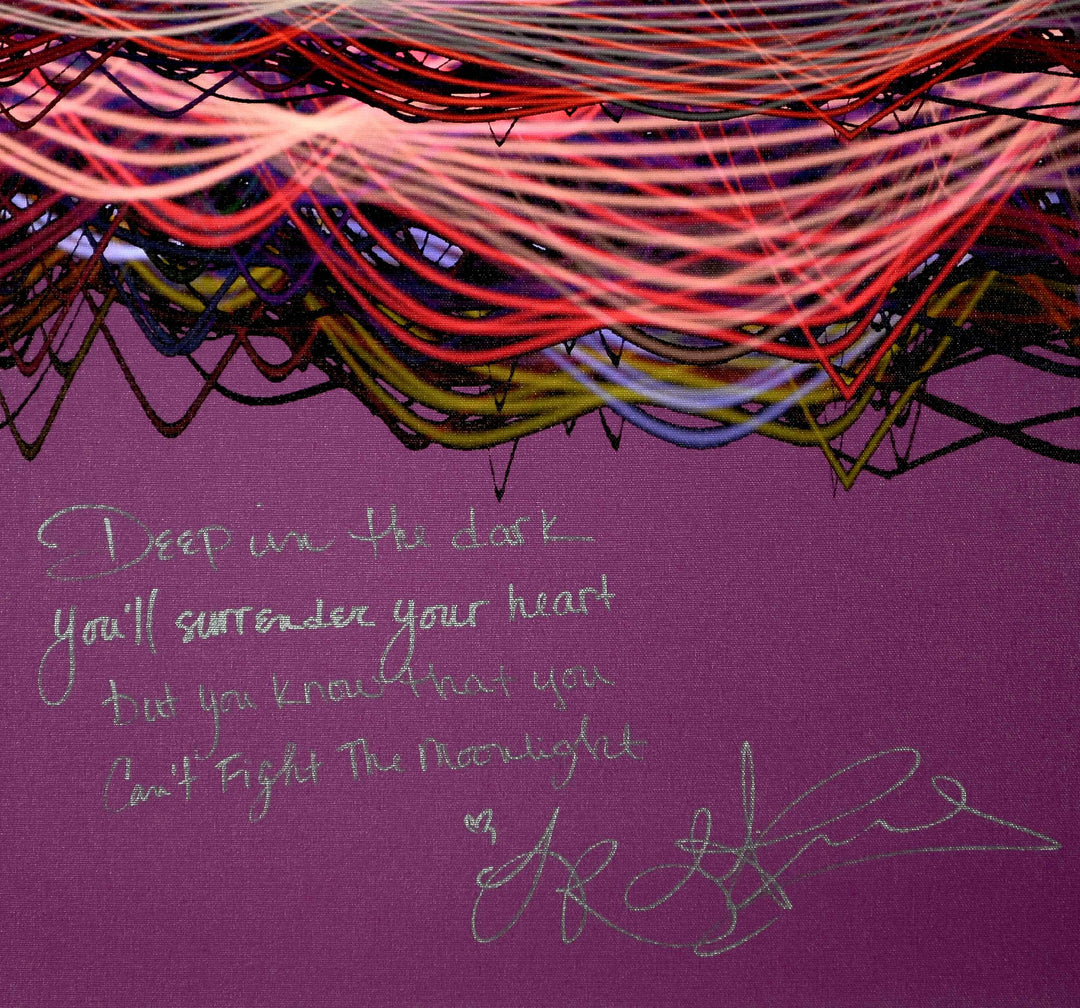 Deep in the dark
you'll surrender your heart
but you know that you
Can't Fight The Moonlight